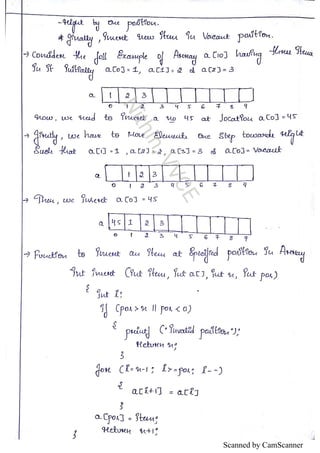 -right by one position.
* finally, insert new item in vacant position.
→ Consider the foll Example of Array a[10] having three items
in it initially a[0]=1, a[1]=2 & a[2]=3
a 1 2 3
0 1 2 3 4 5 6 7 8 9
Now, we need to insert a no 45 at location a[0]=45
→ firstly, we have to Move Elements One Step towards right
Such that a[1]=1, a[2]=2, a[3]=3 & a[0]= Vacant
a 1 2 3
0 1 2 3 4 5 6 7 8 9
→ Then, we insert a[0]=45
a 45 1 2 3
0 1 2 3 4 5 6 7 8 9
→ Function to insert an item at Specified position in Array
int insert (int item, int a[], int n, int pos)
{ int i;
if (pos>n || pos<0)
{ printf ("invalid position");
return n;
}
for (i=n-1; i>=pos; i--)
{
a[i+1] = a[i]
}
a[pos] = item;
return n+1;
}
Scanned by CamScanner